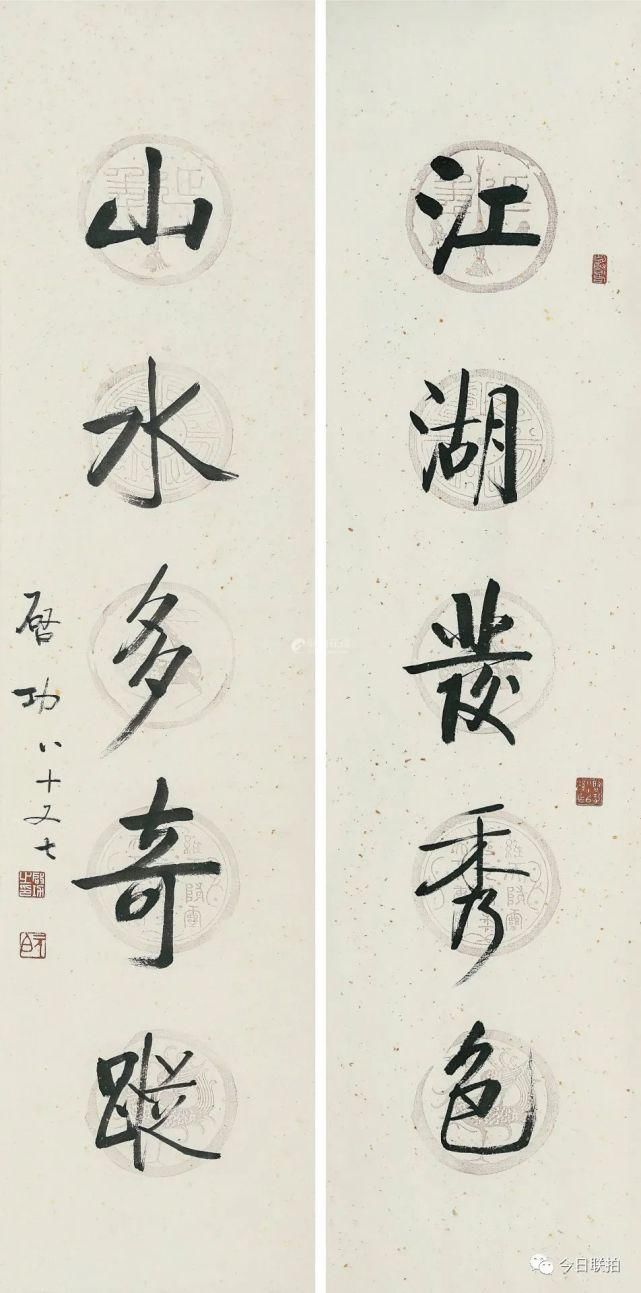 江湖發秀色
山水多奇蹤
启功八十又七
今日联拍